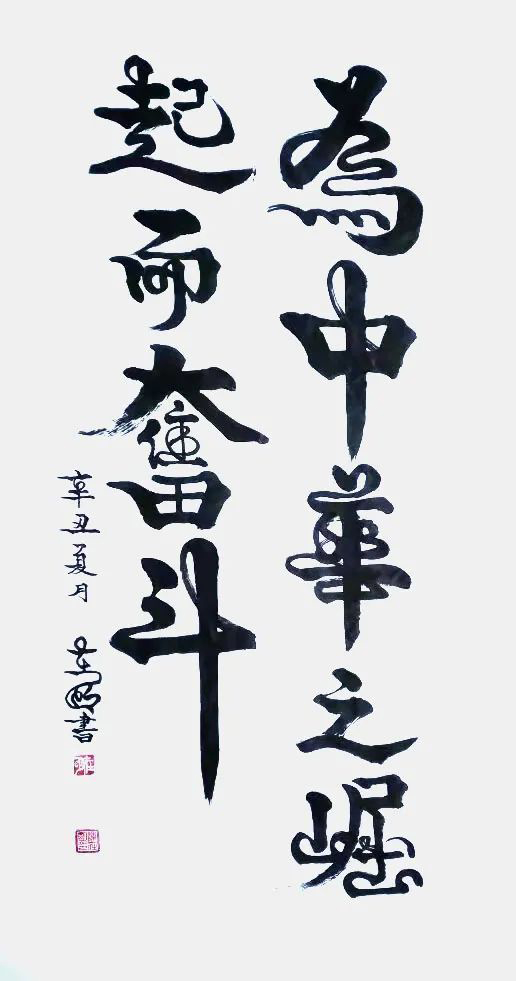 為中華之崛
起而奮斗
辛丑夏月
書